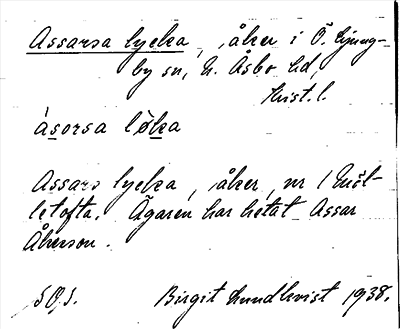 Assarsa lycka, åker i Ö. Ljung-
by sn, N. Åsbo hd,
Krist. l.
ásorsa løka
Assars lycka, åker, nr 1 Möl-
letofta. Ägaren har hetat Assar
Åkerson.
Birgit Lundkvist 1938.